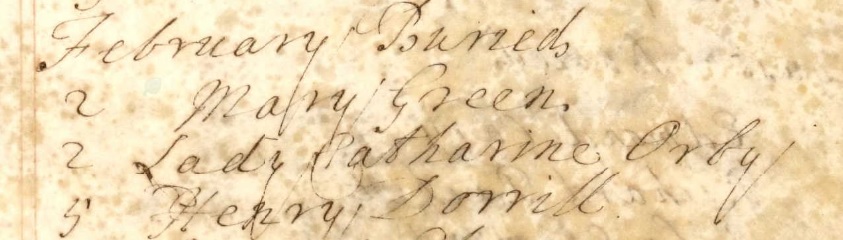 February Buried
2 Mary Green
2 Lady Catharine Orby
5 Henry Dorrill